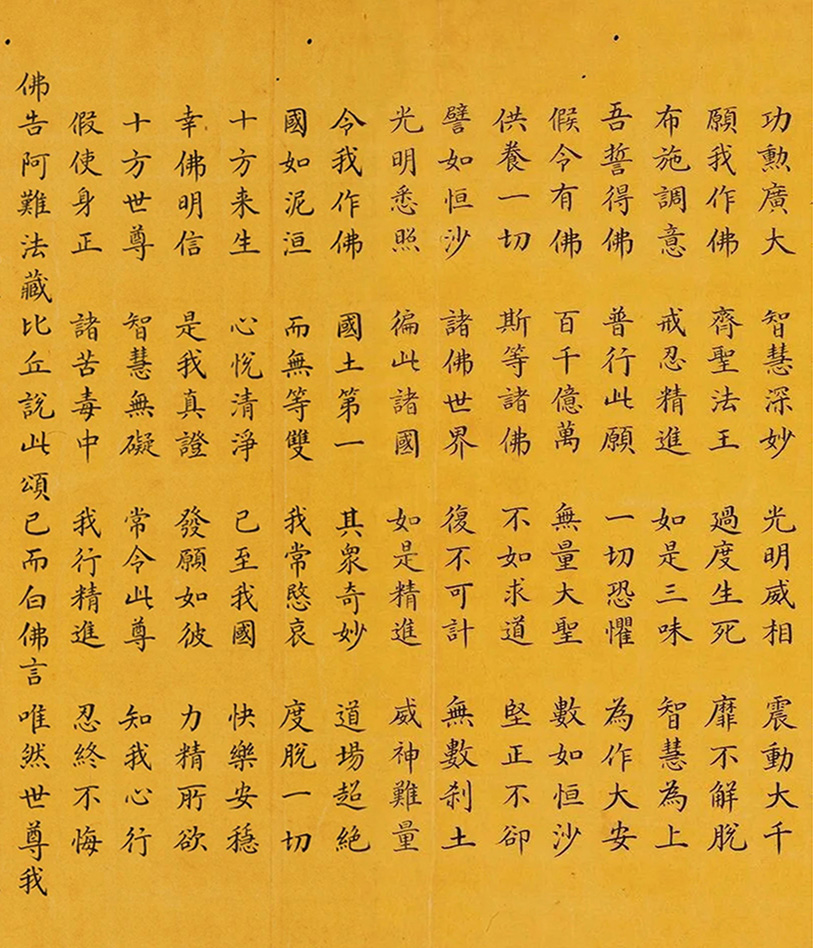 功勲廣大 智慧深妙 光明威相 震動大千
願我作佛 齊聖法王 過度生死 靡不解脫
布施調意 戒忍精進 如是三昧 智慧為上
吾誓得佛 普行此願 一切恐懼 為作大安
假令有佛 百千億萬 無量大聖 數如恒沙
供養一切 斯等諸佛 不如求道 堅正不卻
譬如恒沙 諸佛世界 復不可計 無數剎土
光明悉照 徧此諸國 如是精進 威神難量
令我作佛 國土第一 其眾奇妙 道場超絕
國如泥洹 而無等雙 我常愍哀 度脫一切
十方来生 心悅清淨 已至我國 快樂安穩
幸佛明信 是我真證 發願如彼 力精所欲
十方世尊 智慧無礙 常令此尊 知我心行
假使身正 諸苦毒中 我行精進 忍終不悔
佛告阿難法藏比丘說此頌已而白佛言唯然世尊我